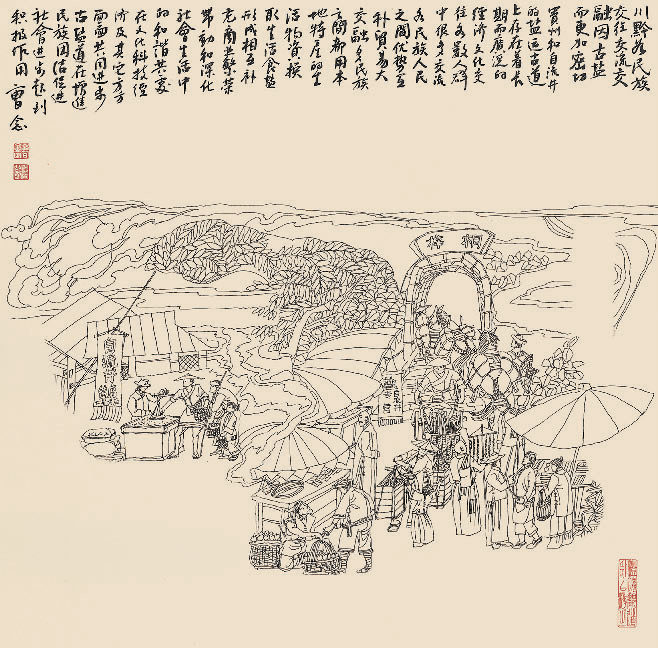 川黔各民族
交往交流交
融因古盐
而更加密切
贵州和自流井
的盐运古道
上存在着长
期而广泛的
经济文化交
往各散人群
中很多交流
各民族人民
之间优势互
补贸易大
交融多民族
之间都用本
地特产的生
活物资换
取生活食盐
形成相互补
充商业繁荣
带动和深化
社会生活中
的和谐共发
在文化科技经
济及其它方方
面面共同进步
古盐道在增进
民族团结促进
社会进步起到
积极作用 曹念
桐梓